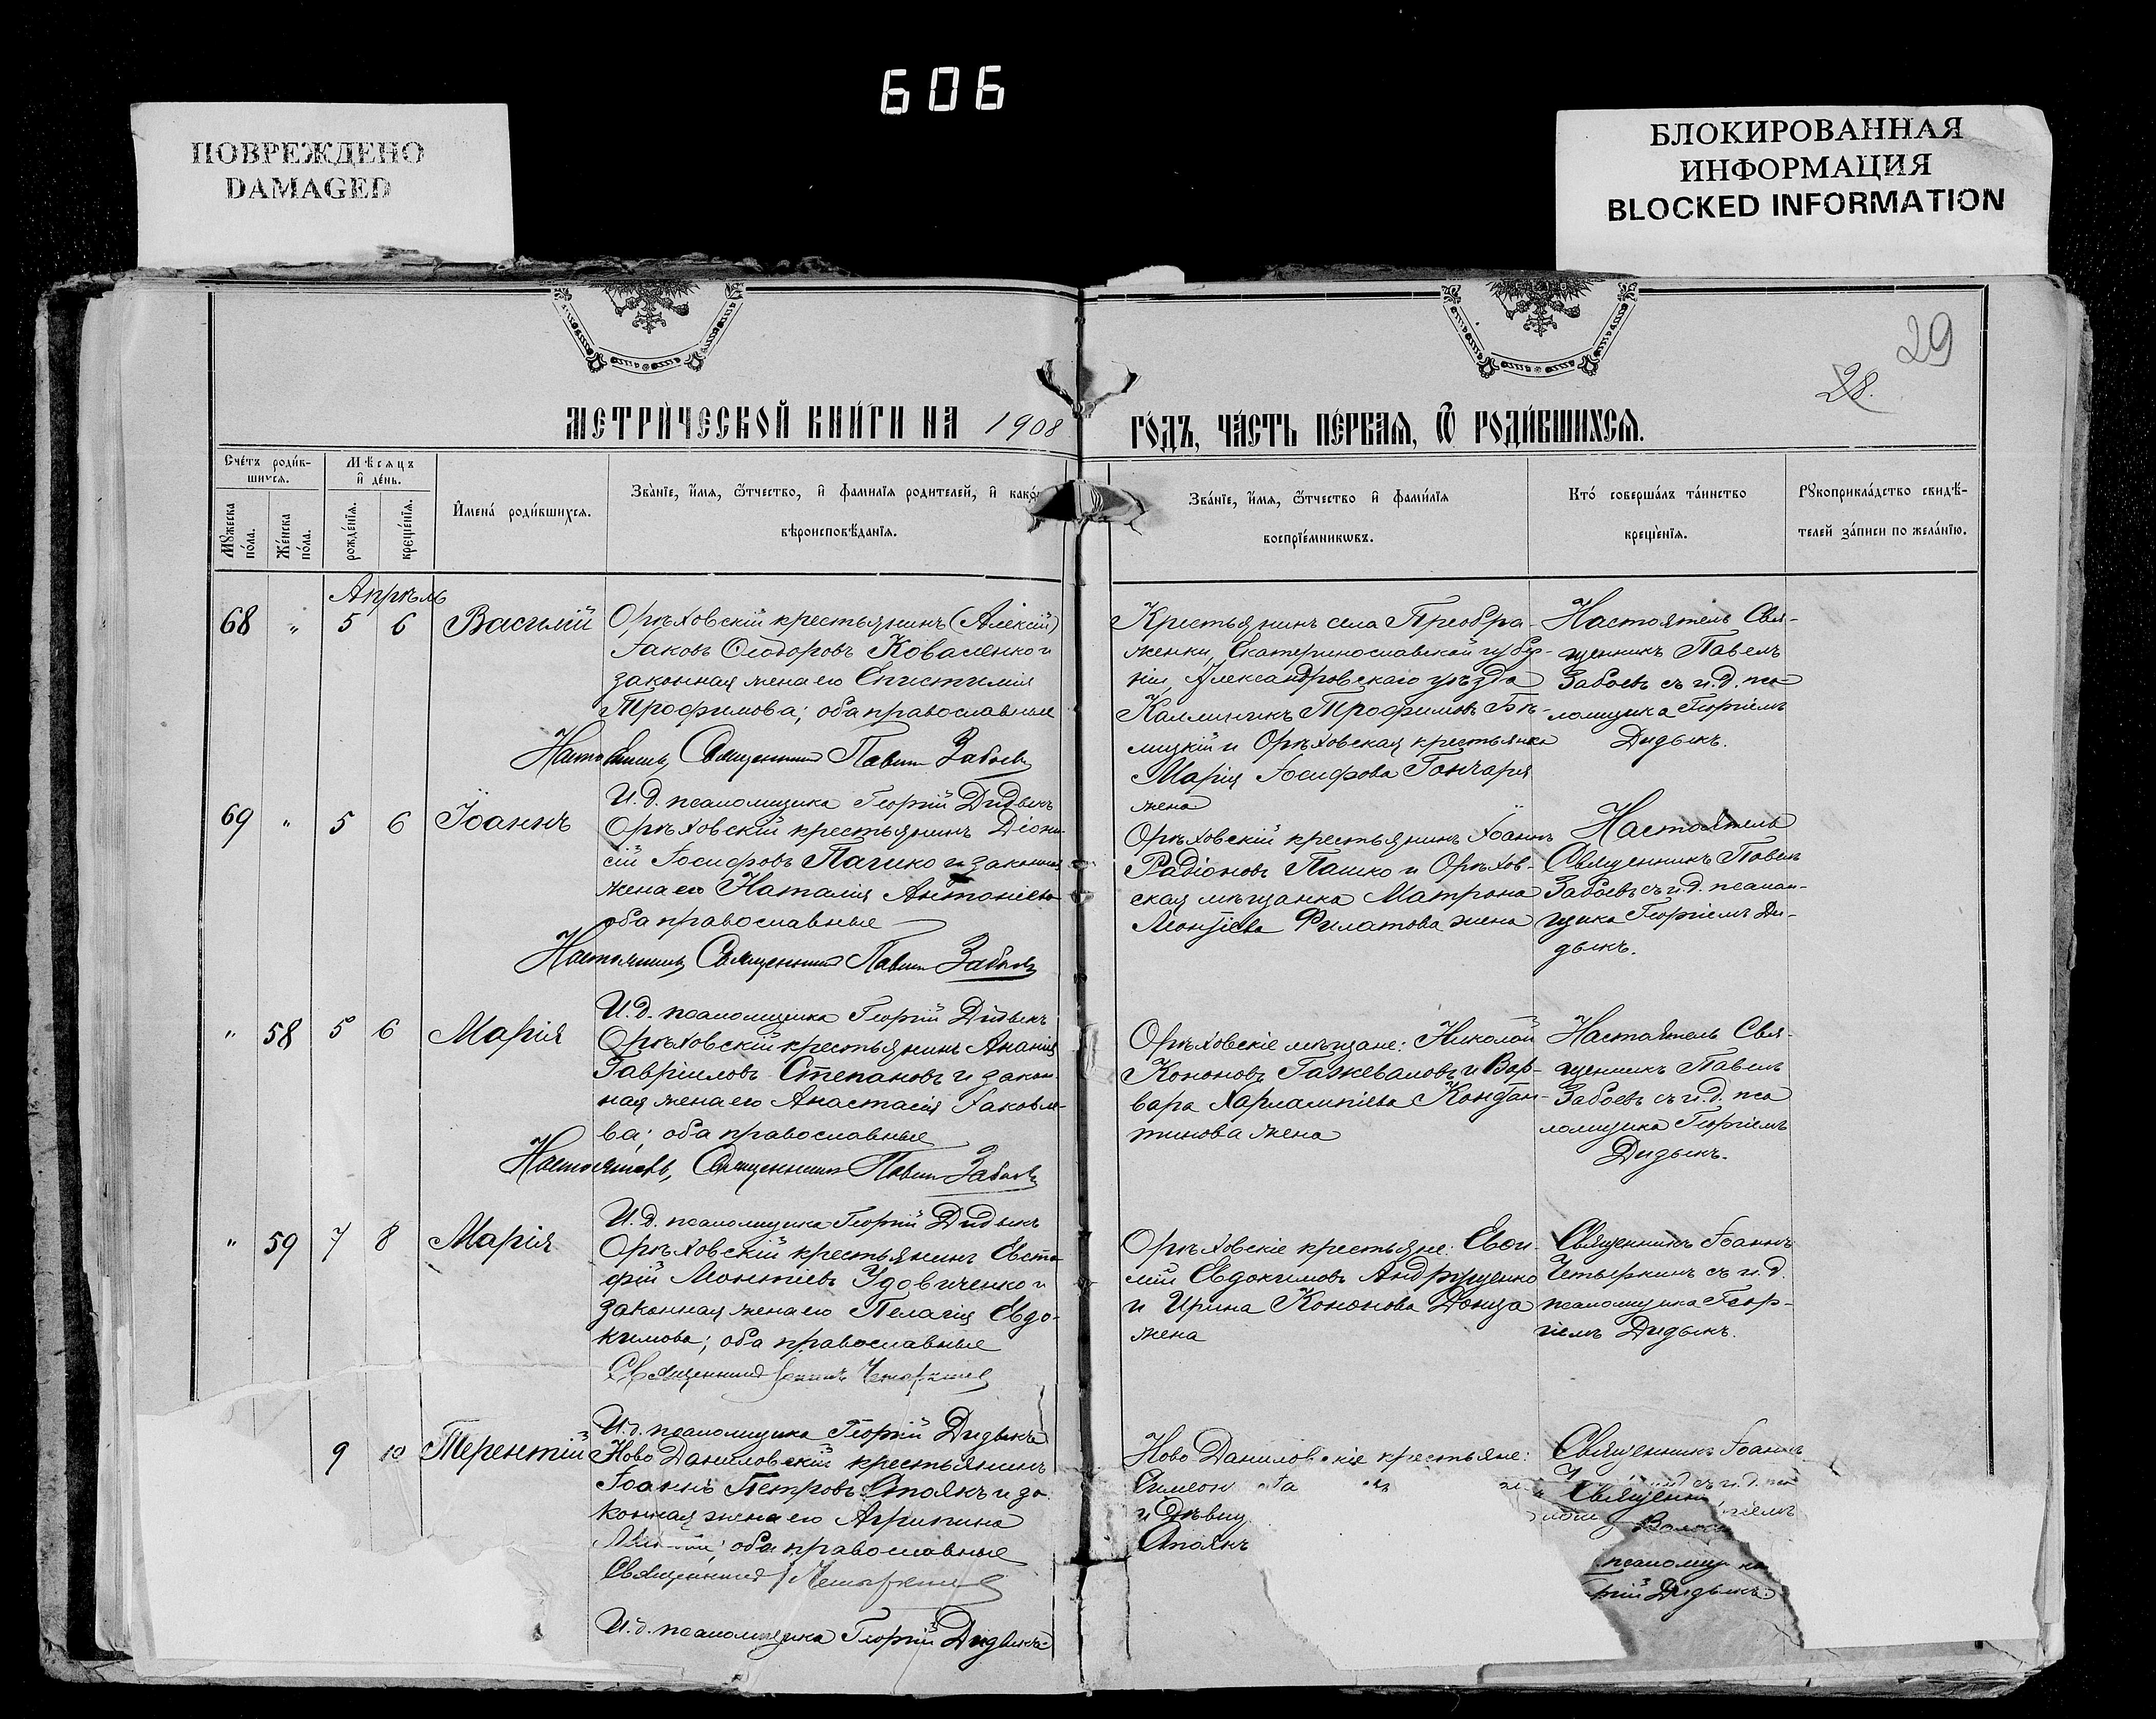 606
ПОВРЕЖДЕНО
DAMAGED
БЛОКИРОВАННАЯ
ИНФОРМАЦИЯ
BLOCKED INFORMATION
29
28.
МЕТРИЧЕСКОЙ КНИГИ НА 1908 ГОДЪ, ЧАСТЬ ПЕРВАЯ, Ѿ РОДИВШИХСЯ.
Счетъ родив-
шихся.
Мужеска
пола.
Женска
пола.
Мѣсяцъ
и день.
рожденія.
крещенія.
Имена родившихся.
Званіе, имя, ѿтчество, и фамилія родителей, и како
вѣроисповѣданія.
Званіе, имя, ѿтчество и фамилія
воспріемниковъ.
Кто совершалъ таинство
крещенія.
Рукоприкладство свидѣ-
телей записи по желанію.
Апрѣль
68 " 5 6 Василій
Орѣховскій крестьянинъ (Алексій)
Іаковъ Ѳеодоровъ Коваленко и
законная жена его Епистимія
Трофимова; оба православные
Настоятель, Священникъ Павелъ Забоевъ
И.д. псаломщика Георгій Дидыкъ
Крестьянинъ села Преобра-
женки, Екатеринославской губер-
ніи, Александровскаго уѣзда
Каллиникъ Трофимовъ Бѣ-
лицкій и Орѣховская крестьянка
Марія Іосифова Гончаря
жена
Настоятель Свя-
щенникъ Павелъ
Забоевъ съ и.д. пса-
ломщика Георгіемъ
Дидыкъ.
69 " 5 6 Іоаннъ
Орѣховскій крестьянинъ Діони-
сій Іосифовъ Пашко и законная
жена его Наталія Антоніева
оба православные
Настоятель, Священникъ Павелъ Забоевъ
И.д. псаломщика Георгій Дидыкъ
Орѣховскій крестьянинъ Іоаннъ
Радіоновъ Пашко и Орѣхов-
ская мѣщанка Матрона
Леонтіева Филатова жена
Настоятель
Священникъ Павелъ
Забоевъ съ и.д. псалом-
щика Георгіемъ Ди-
дыкъ.
" 58 5 6 Марія
Орѣховскій крестьянинъ Ананія
Гавріиловъ Степановъ и закон-
ная жена его Анастасія Іаковле-
ва; оба православные
Настоятель, Священникъ Павелъ Забоевъ
И.д. псаломщика Георгій Дидыкъ
Орѣховскіе мѣщане: Николай
Кононовъ Гажеваловъ и Вар-
вара Харлампіева Констан-
тинова жена
Настоятель Свя-
щенникъ Павелъ
Забоевъ съ и.д. пса
ломщика Георгіемъ
Дидыкъ.
" 59 7 8 Марія
Орѣховскій крестьянинъ Евста-
фій Леонтіевъ Удовиченко и
законная жена его Пелагія Евдо-
кимова; оба православные
Священникъ Іоаннъ Четыркинъ
И.д. псаломщика Георгій Дидыкъ
Орѣховскіе крестьяне: Евѳи-
мій Евдокимовъ Андрущенко
и Ирина Кононова Донца
жена
Священникъ Іоаннъ
Четыркинъ съ и.д.
псаломщика Геор-
гіемъ Дидыкъ.
9 10 Терентій
Ново Даниловскій крестьянинъ
Іоаннъ Петровъ Стоянъ и за-
конная жена его Агрипина
оба православные
Священникъ Четыркинъ
И.д. псаломщика Георгій Дидыкъ
Ново Даниловскіе крестьяне:
Симеон
и Дѣвиц
Стоянъ
Священникъ Іоаннъ
съ и.д. пса
Священни
гіемъ
псаломщика
ргій Дидыкъ